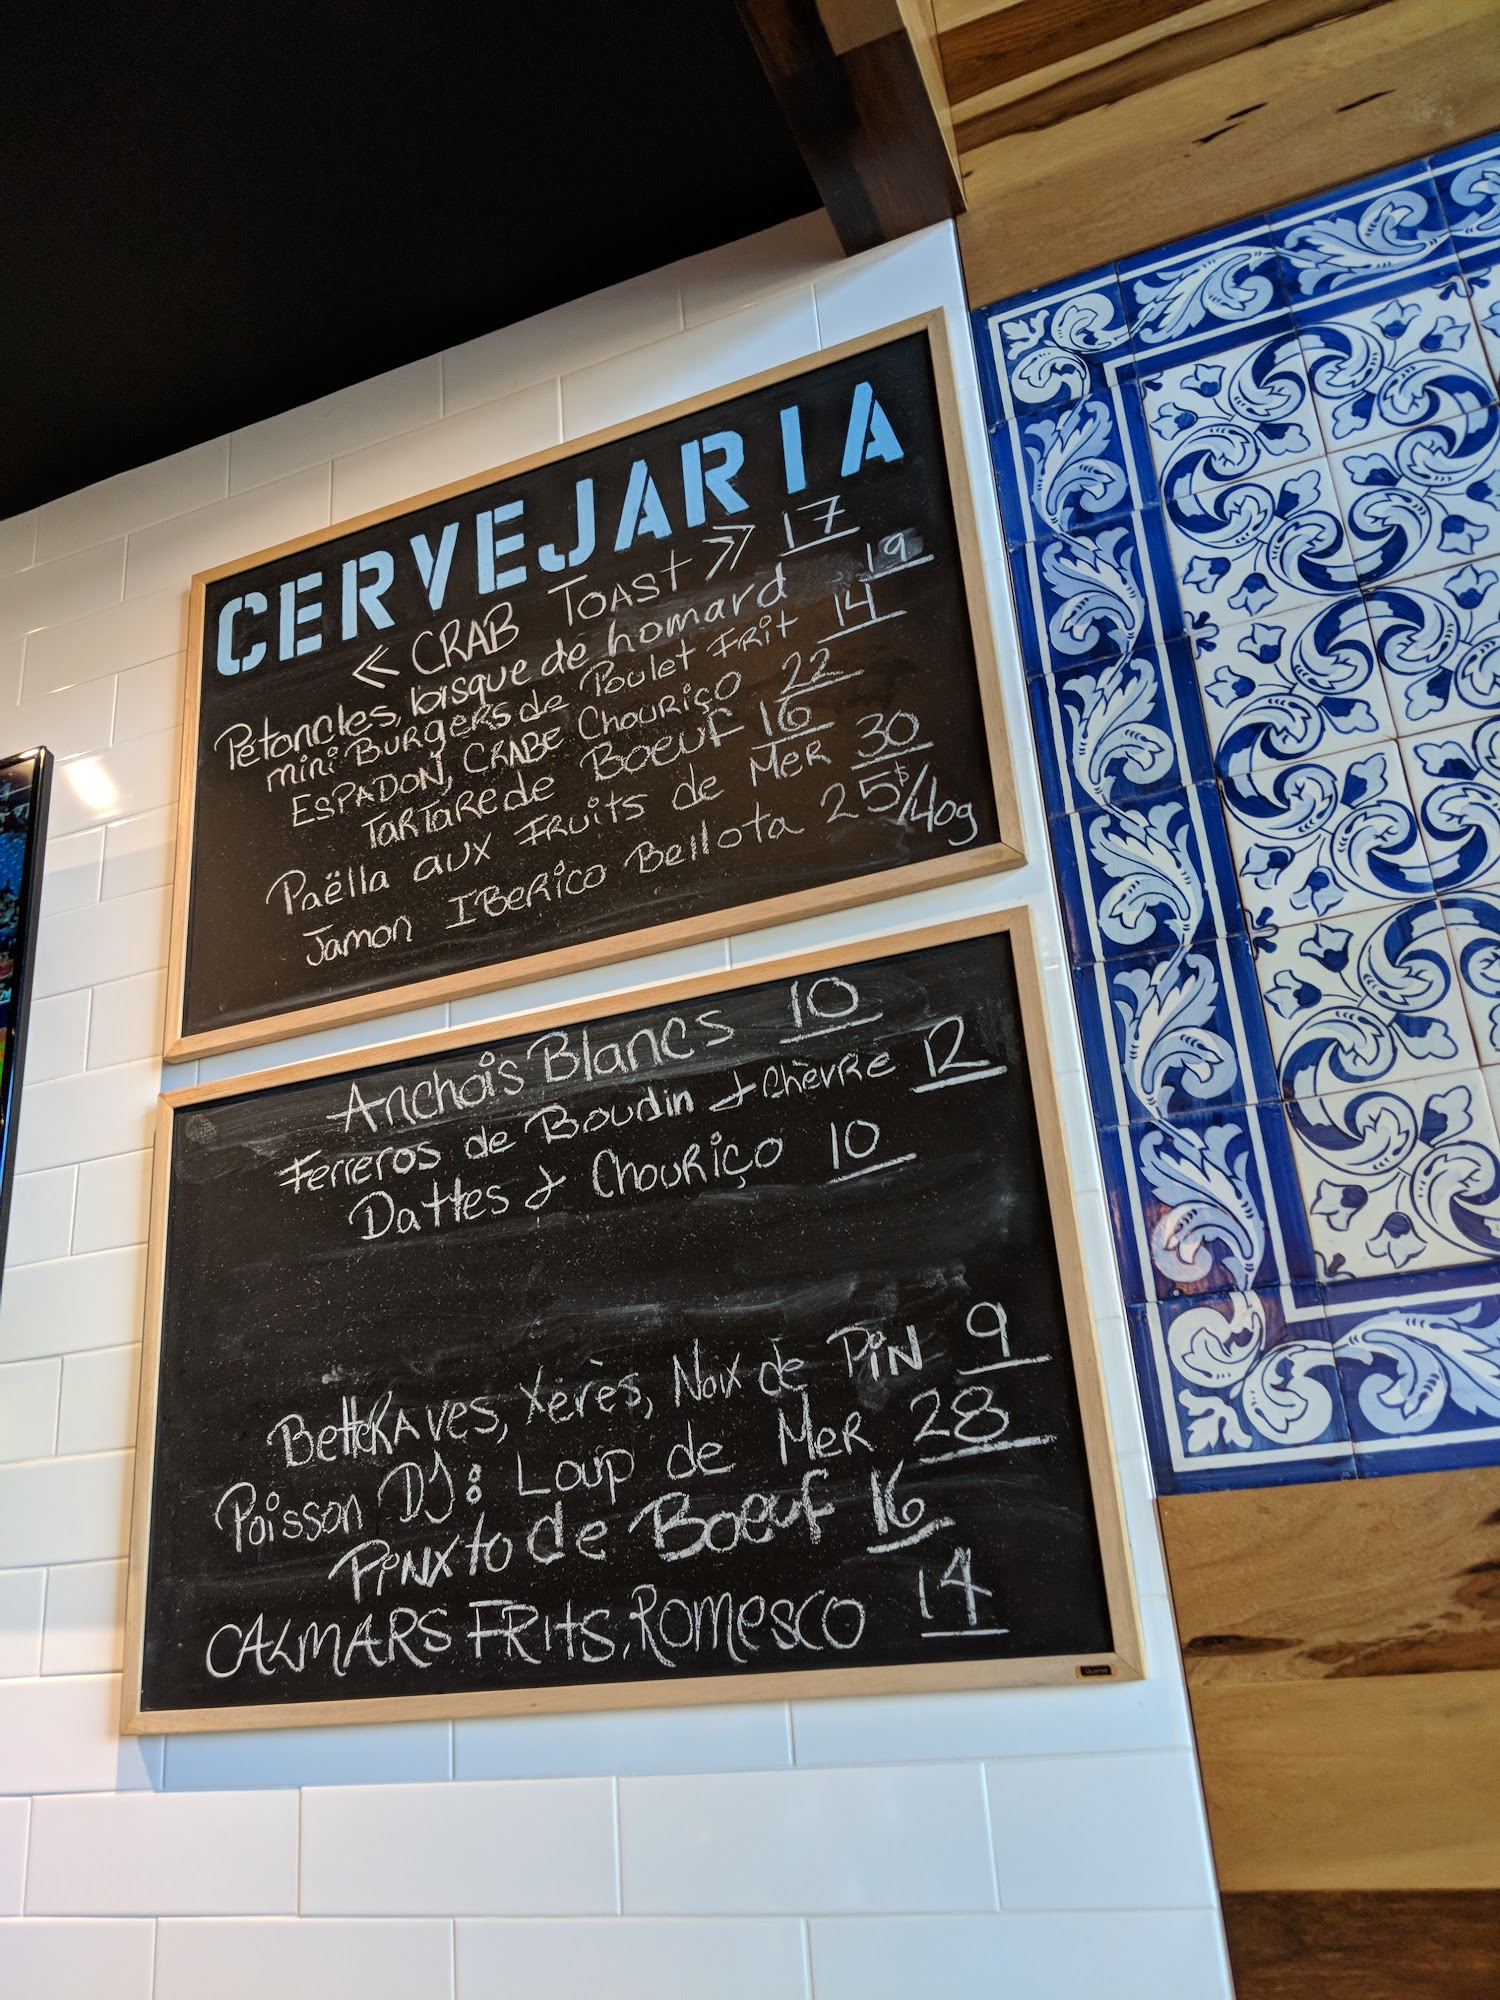 CERVEJARIA
« CRAB TOAST » 17
Pétoncles, bisque de homard 19
mini Burgers de Poulet Frit 14
ESPADON, CRABE Chouriço 22
TARTARE de Boeuf 16
Paëlla aux Fruits de Mer 30
Jamon IBERICO Bellota 25$/40g
Anchois Blancs 10
Ferreros de Boudin & chèvre 12
Dattes & Chouriço 10
BetteRAves, Xérès, Noix de Pin 9
Poisson DJ: Loup de Mer 28
Pinxto de Boeuf 16
CALMARS FRITS, Romesco 14